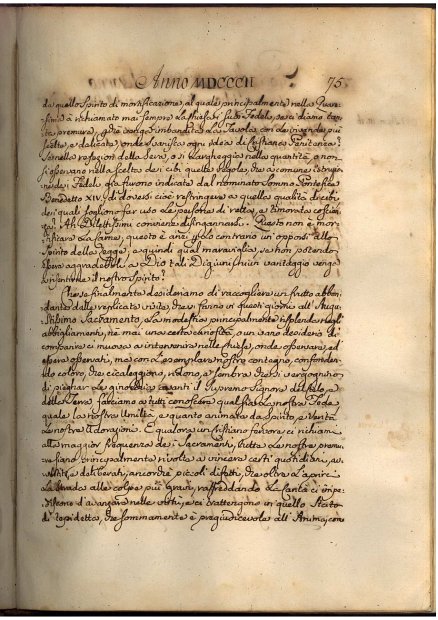 Anno MDCCCII 75
da quello Spirito di mortificazione, al quale principalmente nella Quare-
sima à richiamato mai sempre La Chiesa i suoi Fedeli, se ci diamo tan-
ta premura, che venga imbandita La Tavola con le vivande più
scelte, e delicate, onde svanisca ogni idea di Cristiana Penitenza?
Se nelle refezioni della Sera, o si largheggia nella quantità, o non
si osservano nella scelta dei cibi quelle regole, che a comune istruzio-
ne dei Fedeli già furono indicate dal rinominato Sommo Pontefice
Benedetto XIV, di doversi cioè restringere a quella qualità di cibi,
dei quali sogliono far uso Le persone di retta, e timorata coscien-
za? Ah Dilettissimi conviene disingannarsi. Questo non è mor-
tificare La Carne, questo è anzi tutto contrario un opporsi allo
Spirito della Legge, e quindi qual maraviglia, se non potendo
essere aggradevoli a Dio tali Digiuni, niun vantaggio venga
a risentirne il nostro Spirito?
Che se finalmente desideriamo di raccogliere un frutto abbon-
dante dalle replicate visite, che si fanno in questi giorni all' Augu-
stissimo Sacramento, La modestia principalmente risplenda negli
abbigliamenti, nè mai una certa curiosità, o un vano desiderio di
comparire ci muova a intervenire nelle Chiese, onde osservare, ed
essere osservati, ma con L'esemplare nostro contegno, confonden-
do coloro, che cicaleggiano, ridono, e sembra che si vergognino
di piegar Le ginocchia avanti il Supremo Signore del Cielo, e
della Terra, facciamo a tutti conoscere qual sia La nostra Fede
quale La nostra Umiltà, e quanto animate da Spirito, e Verità
Le nostre Adorazioni. E qualora un cristiano fervore ci richiami
alla maggior frequenza dei Sacramenti, tutte Le nostre premu-
re siano principalmente rivolte a vincere certi quotidiani, av-
vertiti, e deliberati, ancorchè piccoli difetti, che oltre L'aprire
La strada alle colpe più gravi, raffreddando La Carità ci impe-
discono d'avanzare nelle virtù, e ci trattengono in quello Stato
di tepidezza, che sommamente è pregiudicevole all' Anima, con